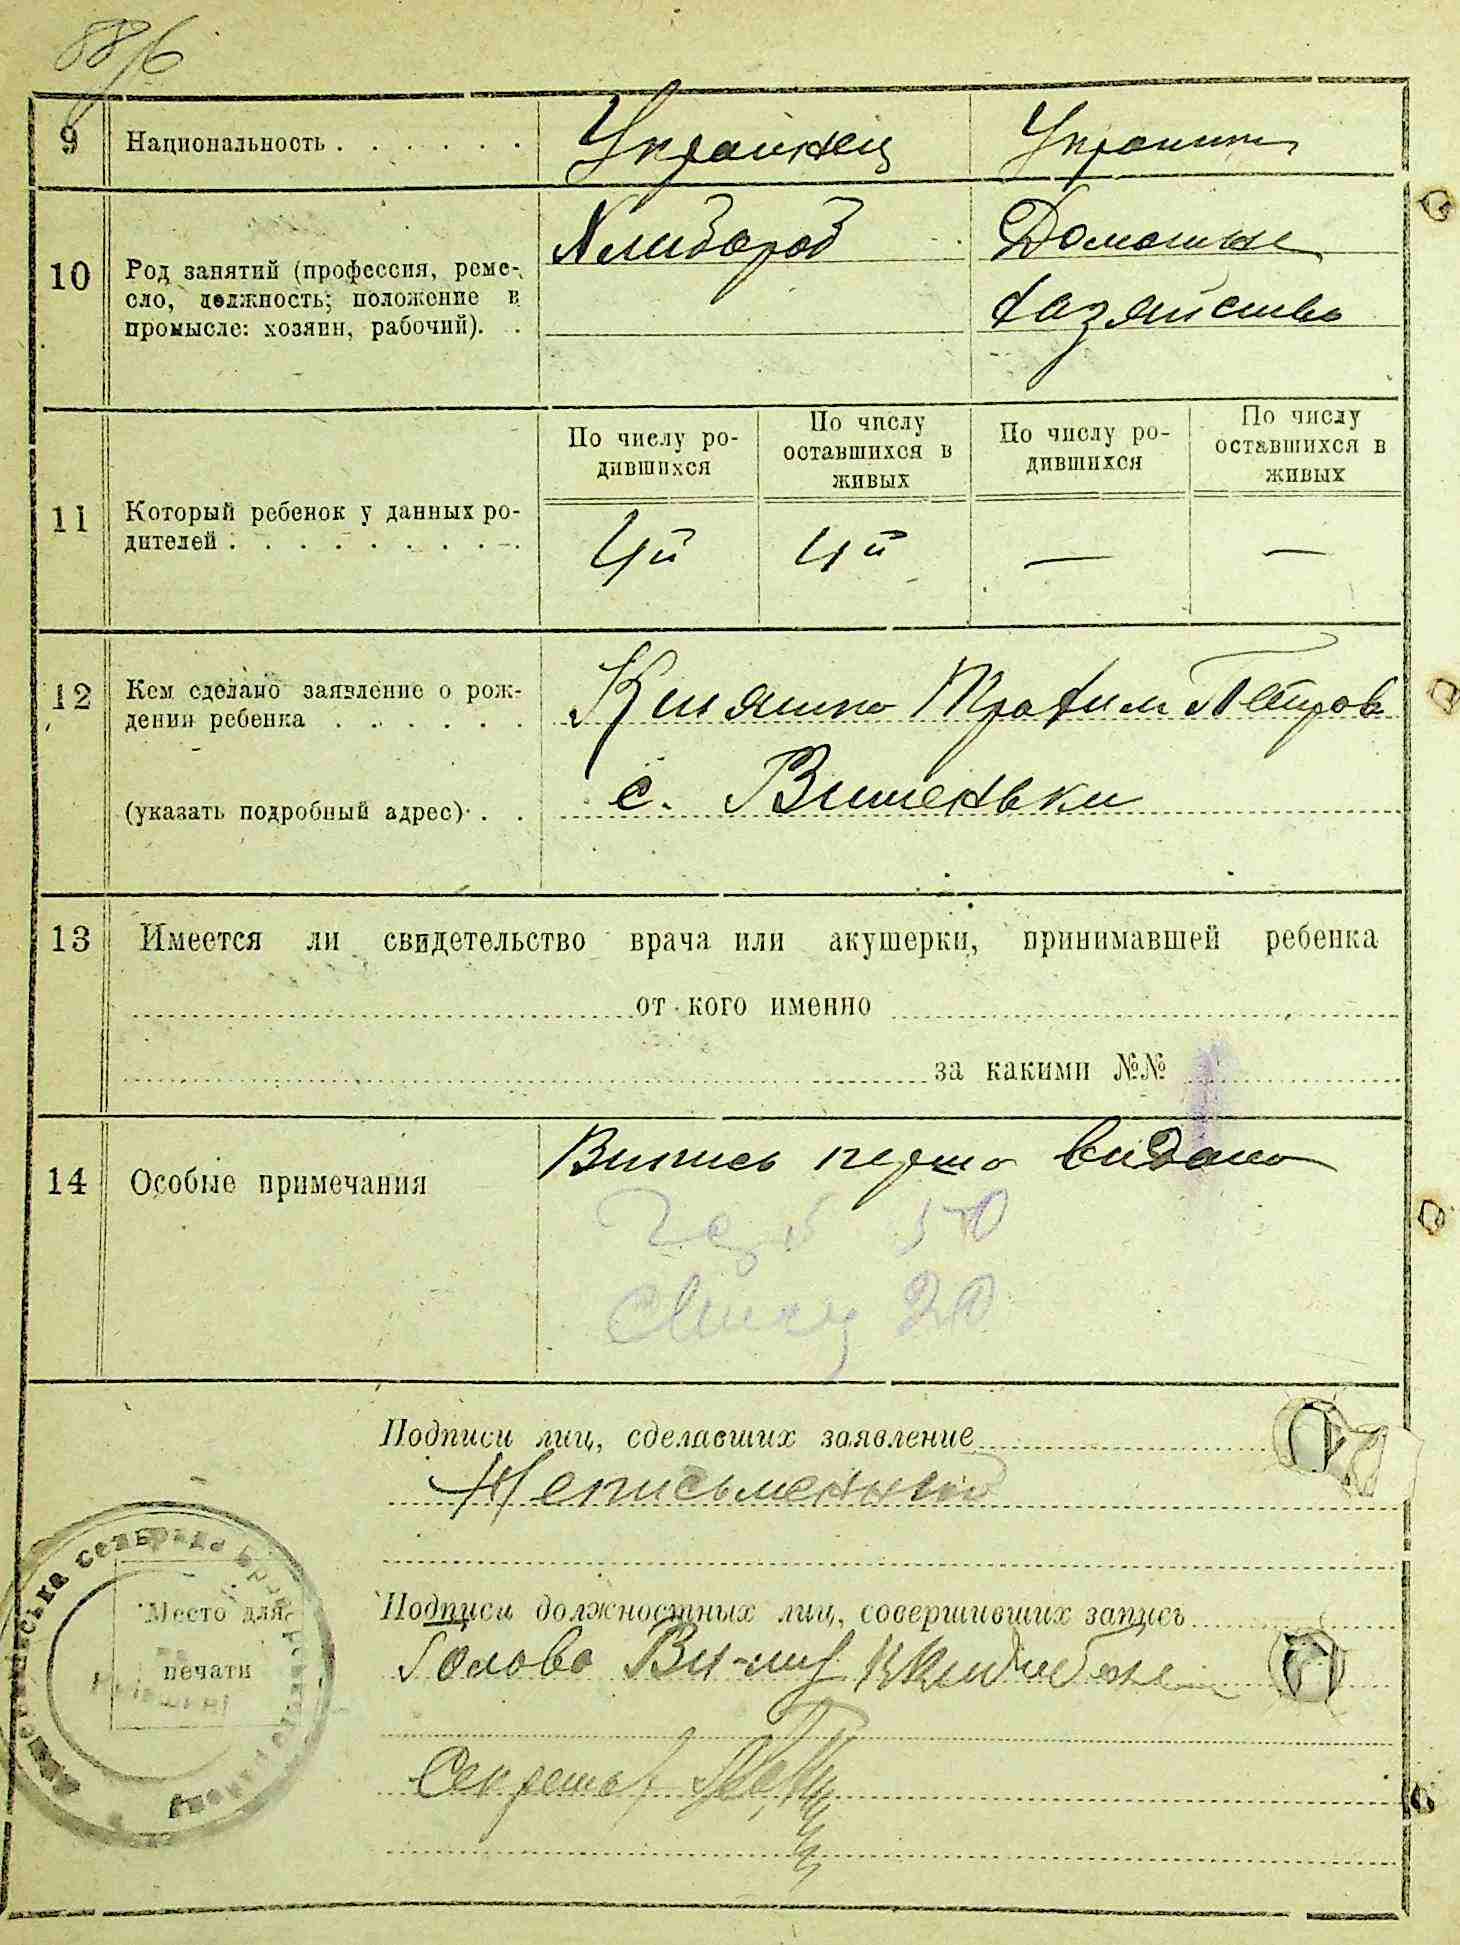 88/6
9 Национальность . . . . . . Украинец Украинк
10 Род занятий (профессия, ремесло, должность; положение в промысле: хозяин, рабочий). .
Хлибороб Домашнє
хазяйство
По числу родившихся По числу оставшихся в живых По числу родившихся По числу оставшихся в живых
11 Который ребенок у данных родителей . . . . . . . . . 4й 4й — —
12 Кем сделано заявление о рождении ребенка . . . . . . Кияшко Трофим Петров
(указать подробный адрес) . . с. Вишеньки
13 Имеется ли свидетельство врача или акушерки, принимавшей ребенка
от кого именно
за какими №№
14 Особые примечания Випись перша видана
50
20
Подписи лиц, сделавших заявление
Неписьменный
Место для печати
Подписи должностных лиц, совершивших запись
Голова
Секретар
сельрада